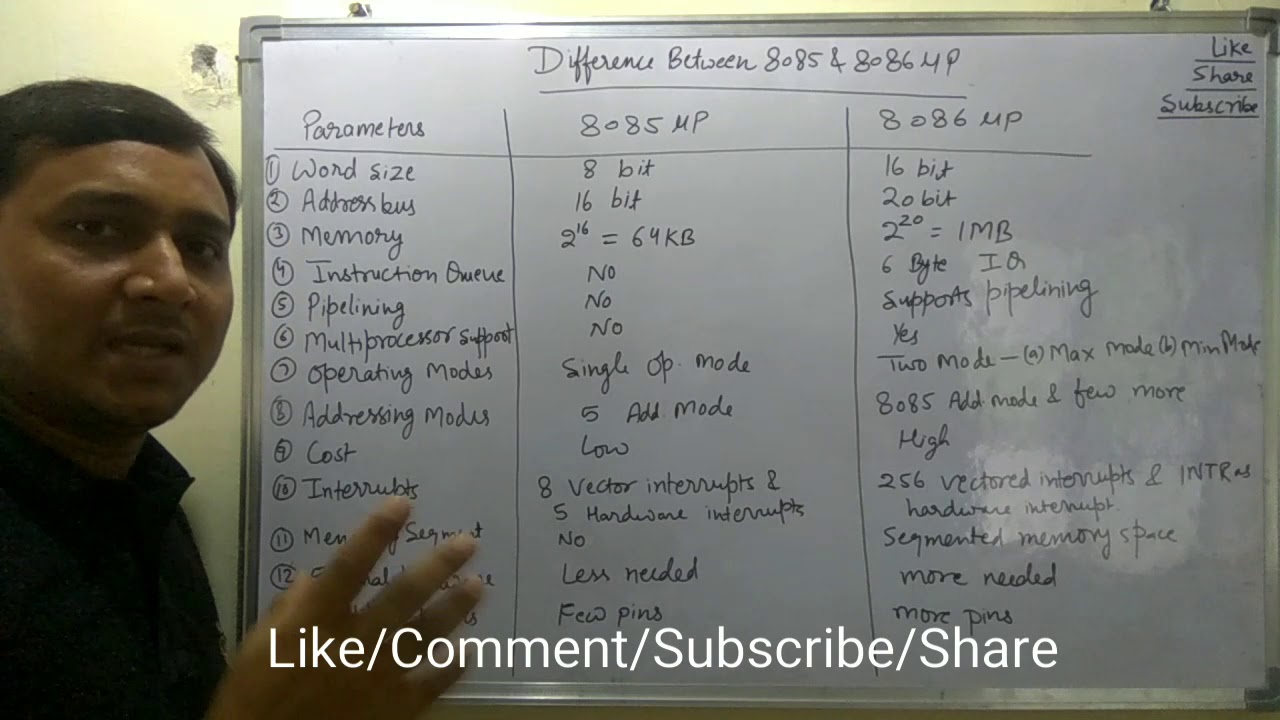 Difference Between 8085 & 8086 μP
Like
Share
Subscribe
Parameters 8085 μP 8086 μP
① Word size 8 bit 16 bit
② Address bus 16 bit 20 bit
③ Memory 2¹⁶ = 64KB 2²⁰ = 1MB
④ Instruction Queue No 6 Byte IQ
⑤ Pipelining No Supports pipelining
⑥ Multiprocessor Support No Yes
⑦ Operating Modes Single Op. mode Two Mode – (a) Max mode (b) Min Mode
⑧ Addressing Modes 5 Add Mode 8085 Add mode & few more
⑨ Cost Low High
⑩ Interrupts 8 Vector interrupts & 256 vectored interrupts & INTR as
5 Hardware interrupts hardware interrupt.
⑪ Segment No Segmented memory space
⑫ Less needed more needed
Few pins more pins
Like/Comment/Subscribe/Share